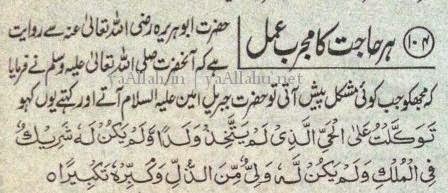 ۱۰۴ ہر حاجت کا مجرب عمل
حضرت ابو ہریرہ رضی اللہ تعالیٰ عنہ سے روایت
ہے کہ آنحضرت صلی اللہ تعالیٰ علیہ وسلم نے فرمایا
کہ مجھ کو جب کوئی مشکل پیش آتی تو حضرت جبریل امین علیہ السلام آتے اور کہتے یوں کہو
تَوَكَّلْتُ عَلَى الْحَيِّ الَّذِي لَمْ يَتَّخِذْ وَلَدًا وَّلَمْ يَكُنْ لَهٗ شَرِيْكٌ
فِي الْمُلْكِ وَلَمْ يَكُنْ لَّهٗ وَلِيٌّ مِّنَ الذُّلِّ وَكَبِّرْهُ تَكْبِيْرًا ه
yaAllah.in | yaAllahu.net